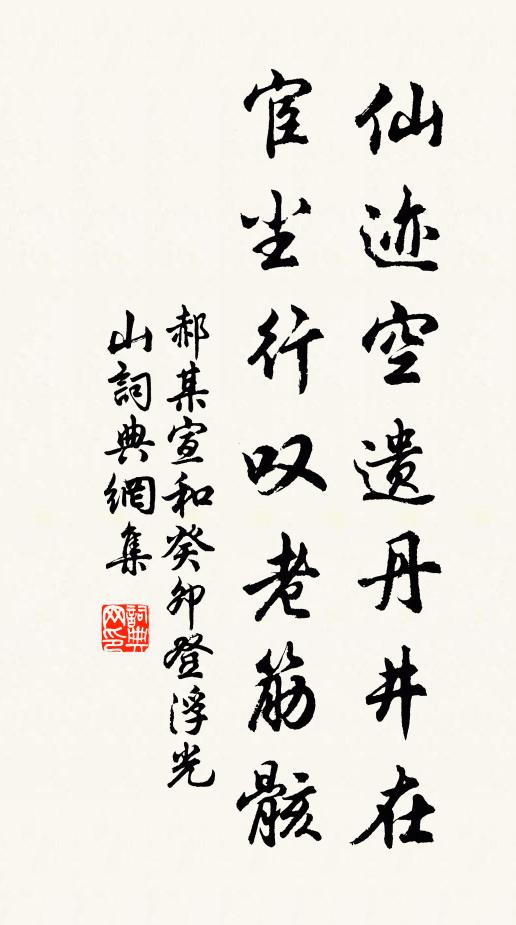 仙迹空遗丹井在
宦尘行叹老筋骸
郝某宣和癸卯登浮光
山詞典網集
詞典
网印